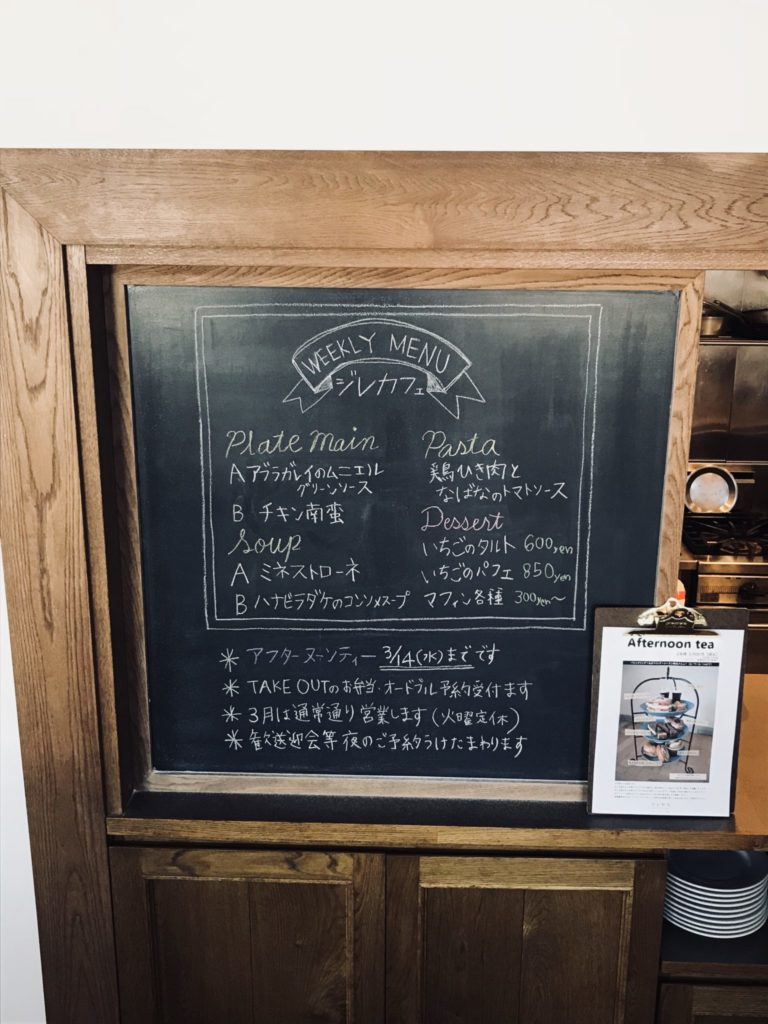 WEEKLY MENU
ジレカフェ
Plate Main
A アブラガレイのムニエル
グリーンソース
B チキン南蛮
Soup
A ミネストローネ
B ハナビラダケのコンソメスープ
Pasta
鶏ひき肉と
なばなのトマトソース
Dessert
いちごのタルト 600yen
いちごのパフェ 850yen
マフィン各種 300yen〜
* アフターヌーンティー 3/14(水)まで です
* TAKE OUTのお弁当・オードブル 予約受付ます
* 3月は通常通り営業します(火曜定休)
* 歓送迎会等夜のご予約うけたまわります
Afternoon tea